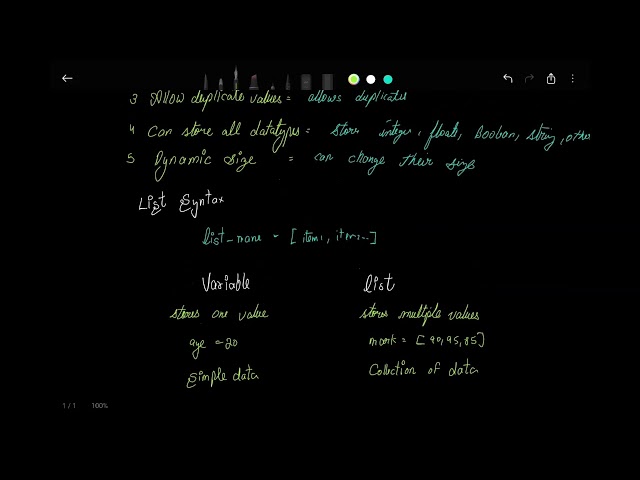 3 Allow duplicate values = allows duplicates
4 Can store all datatypes = store integer, floats, Boolean, string, other
5 Dynamic size = can change their size
List Syntax
list_name = [item1, item...]
Variable List
stores one value stores multiple values
age = 20 mark = [90, 95, 85]
Simple data Collection of data
1 / 1 100%